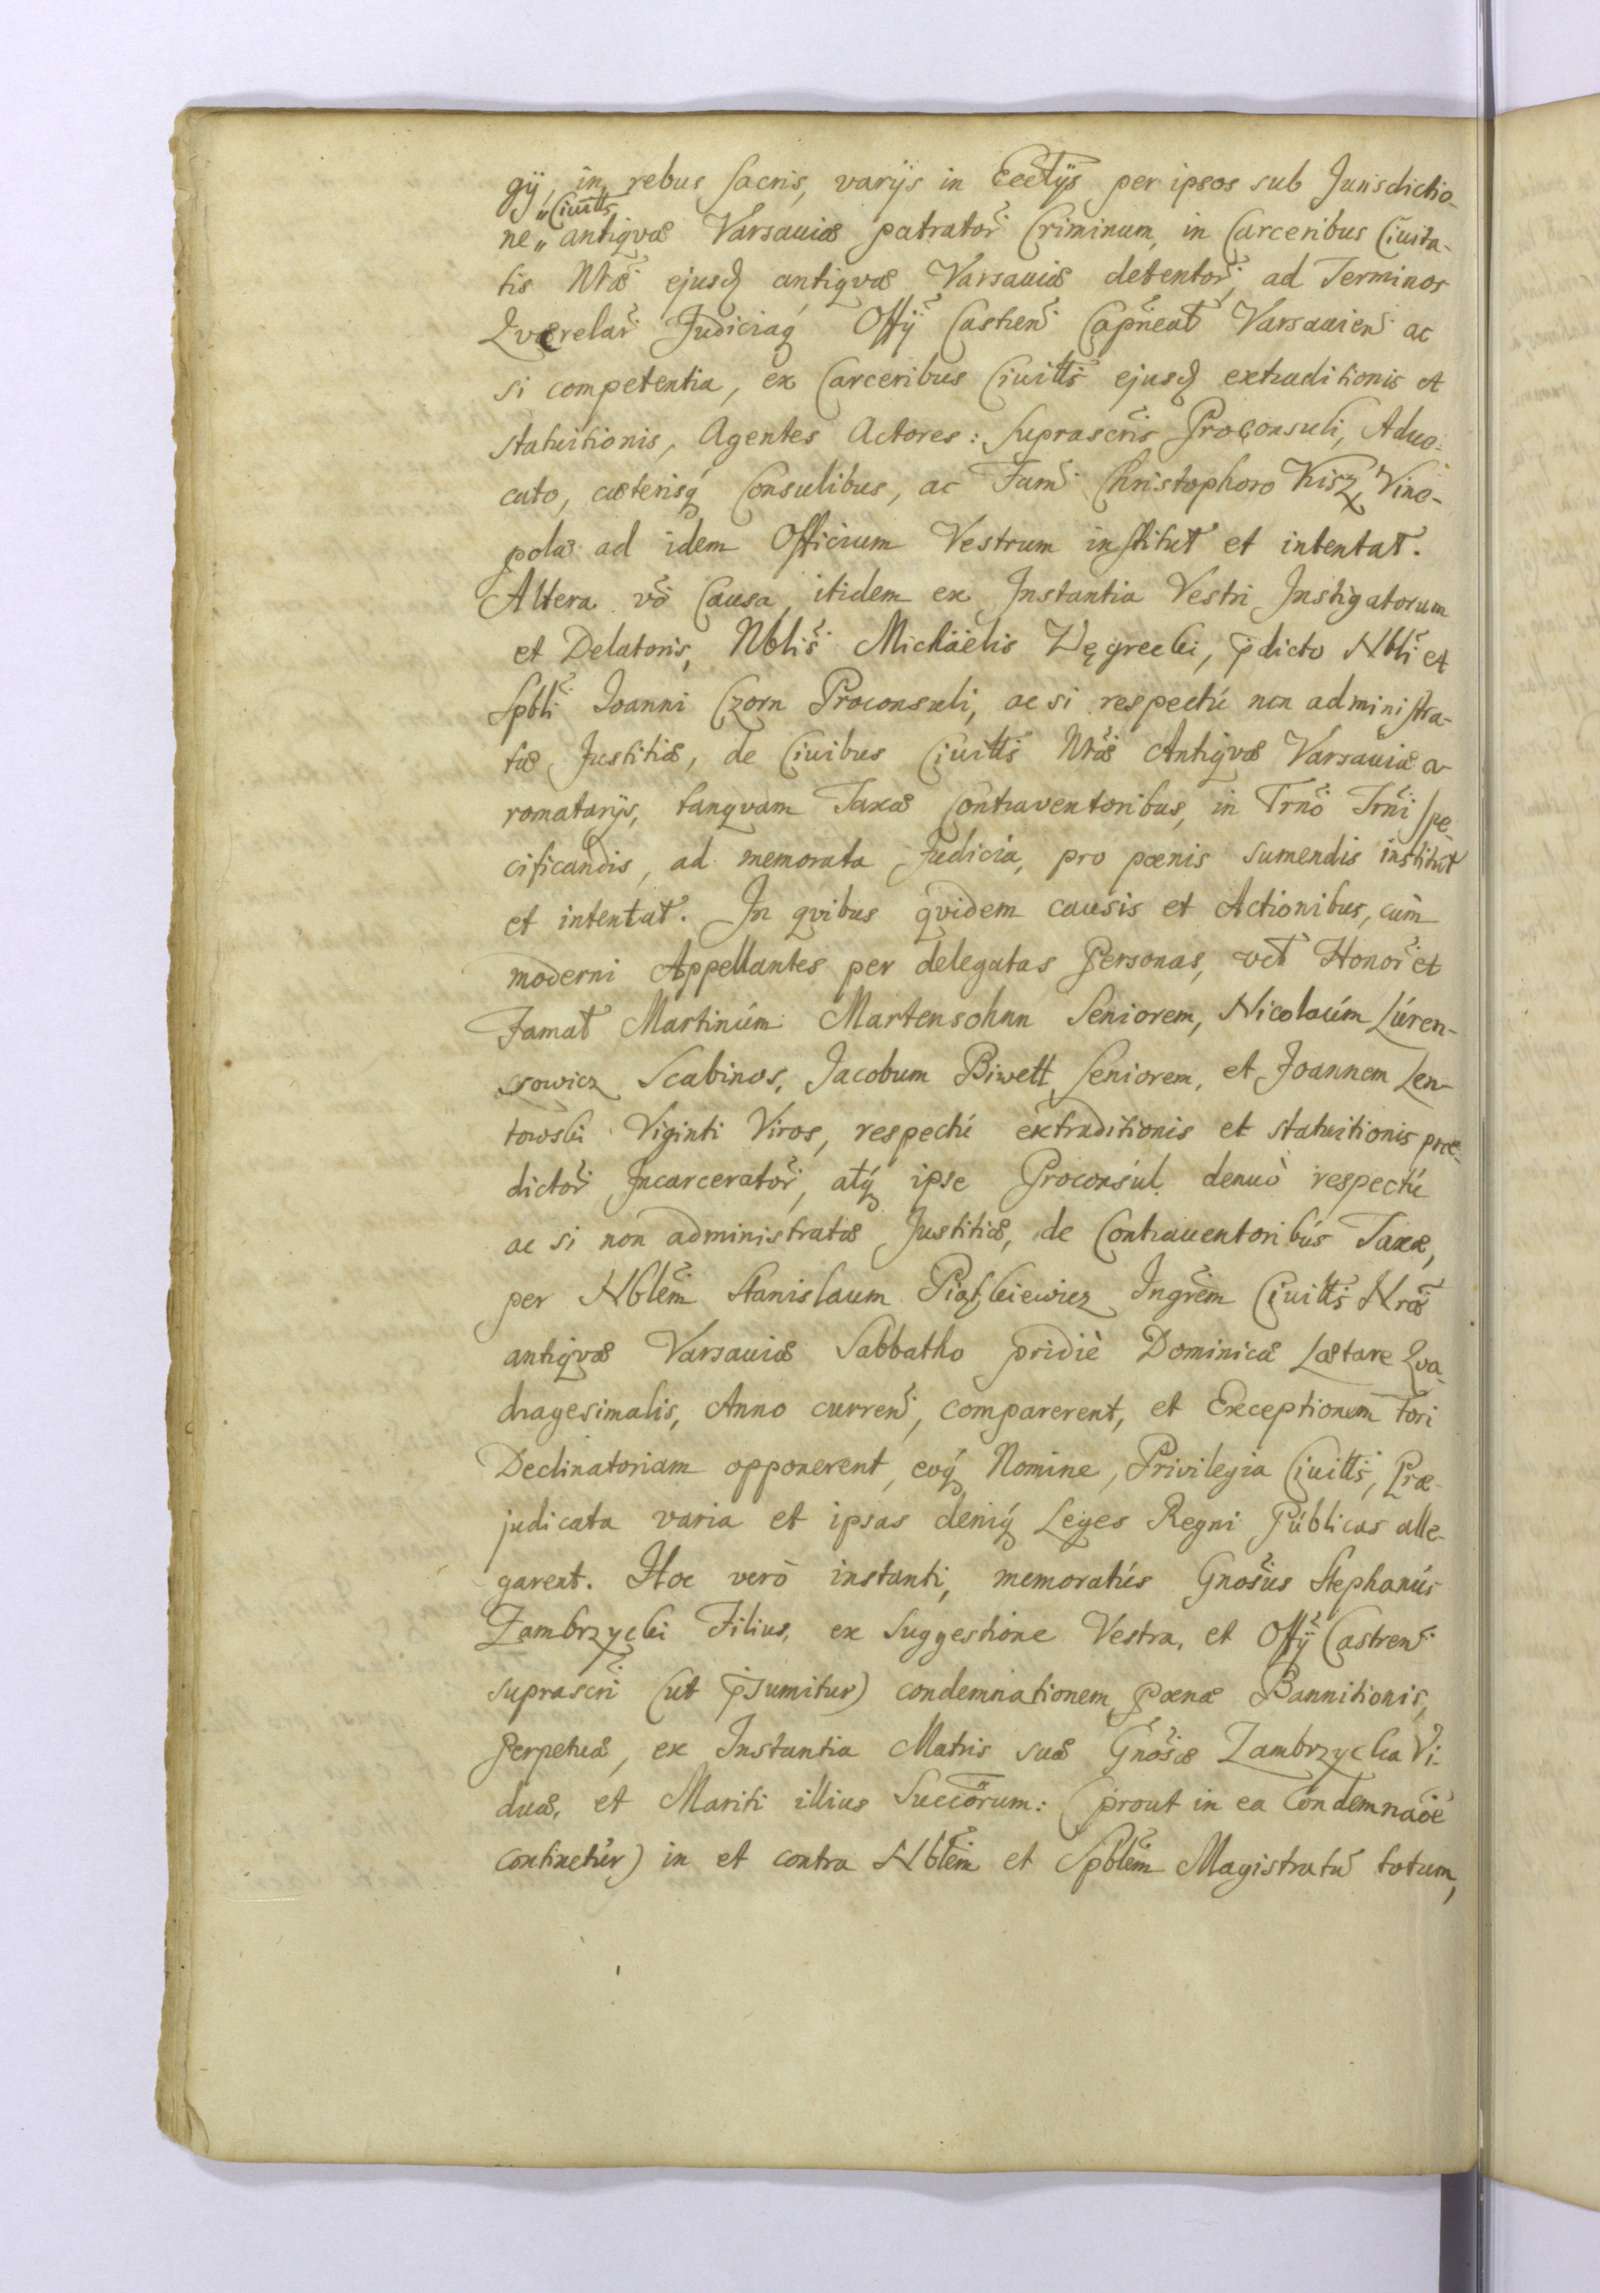 gÿ, in rebus sacris, varÿs in Eccłÿs per ipsos sub Jurisdictio-
ne „Ciuitts antiqvæ Varsauiæ patrator Criminum, in Carceribus Ciuita-
tis Nræ ejusd antiqvæ Varsauiæ detentor, ad Terminos
Qværelar Judiciaq Offÿ Castren Capneal Varsauien ac
si competentia, ex Carceribus Ciuitts ejusd extraditionis et
statuitionis, Agentes Actores: suprascris Proconsuli, Advo-
cato, cæterisq Consulibus, ac Fam Christophoro Kisz, Vino-
polæ ad idem Officium Vestrum institut et intentat.
Altera vo Causa itidem ex Instantia Vestri Instigatorum
et Delatoris, Nblis Michäelis Węgrecki, pdicto Nbli et
Spbli Joanni Czorn Proconsuli, ac si respectú non administra-
tæ Justitiæ, de Ciuibus Ciuitts Nræ Antiqvæ Varsauiæ a-
romatarÿs, tanqvam Taxæ Contraventoribus, in Trno Trni spe-
cificandis, ad memorata Judicia, pro pœnis sumendis institut
et intentat. In qvibus qvidem causis et Actionibus, cum
moderni Appellantes per delegatas Personas, vct Honor et
Famat Martinúm Martensohnn Seniorem, Nicolaúm Lúren-
cowicz Scabinos, Jacobum Biwett Seniorem, et Joannem Len-
towski Viginti Viros, respectú extraditionis et statuitionis præ-
dictor Incarcerator, atq ipse Proconsúl denuò respectú
ac si non administratæ Justitiæ, de Contrauentoribús Taxæ,
per Nblem Stanislaum Piątkiewicz Ingrem Ciuitts Nræ
antiqvæ Varsauiæ Sabbatho pridiè Dominicæ Lætare Qva-
dragesimalis, Anno curren, comparerent, et Exceptionem Fori
Declinatoriam opponerent, eoq Nomine, Privilegia Ciuitts, Præ-
judicata varia et ipsas deniq Leges Regni Públicas alle-
garent. Hoc verò instanti, memoratús Gnosus Stephanús
Zambrzycki Filius, ex Suggestione Vestra, et Offÿ Castren
suprascri (ut psumitur) condemnationem pœnæ Bannitionis,
perpetuæ, ex Instantia Matris suæ Gnosæ Zambrzycka Vi-
duæ, et Mariti illius Succorum: (prout in ea Condemnaoe
continetúr) in et contra Nblem et Spblem Magistratu totum,